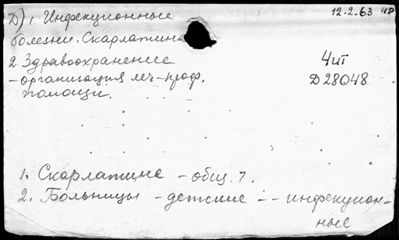 Д) 1 Инфекционные
12.2.63
болезни. Скарлатина
2 Здравоохранение
4 шт
- организация леч-проф.
Д28048
помощи.
1. Скарлатине - общ. 7.
2. Больницы - детские -- инфекцион-
ные